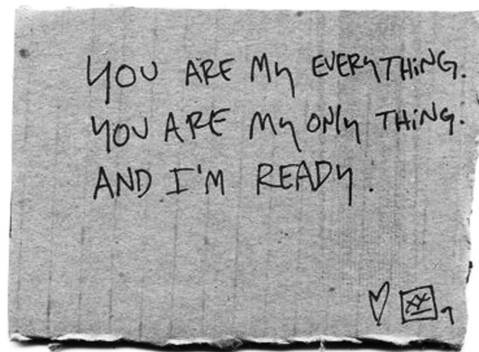 YOU ARE My EVERyTHiNG.
YOU ARE My ONLy THiNG.
AND I'M READy.